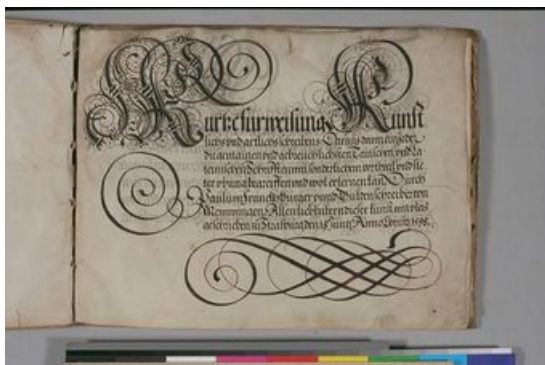 Kurtze furweisung Kunst
lichs und artlichs schreibens Daraus dann ein jeder
die gemainen und gebreuchlichsten Teutschen und La
teinischen Schrifften mit sonderlichem vortheil und ste
ter ubung begreiffen und wol erlernen kan Durch
Paulum Burger und Guldenschreiber von
Memmingen Allen liebhabern dieser kunst mit vleis
geschrieben zu Straßburg den Juny Anno